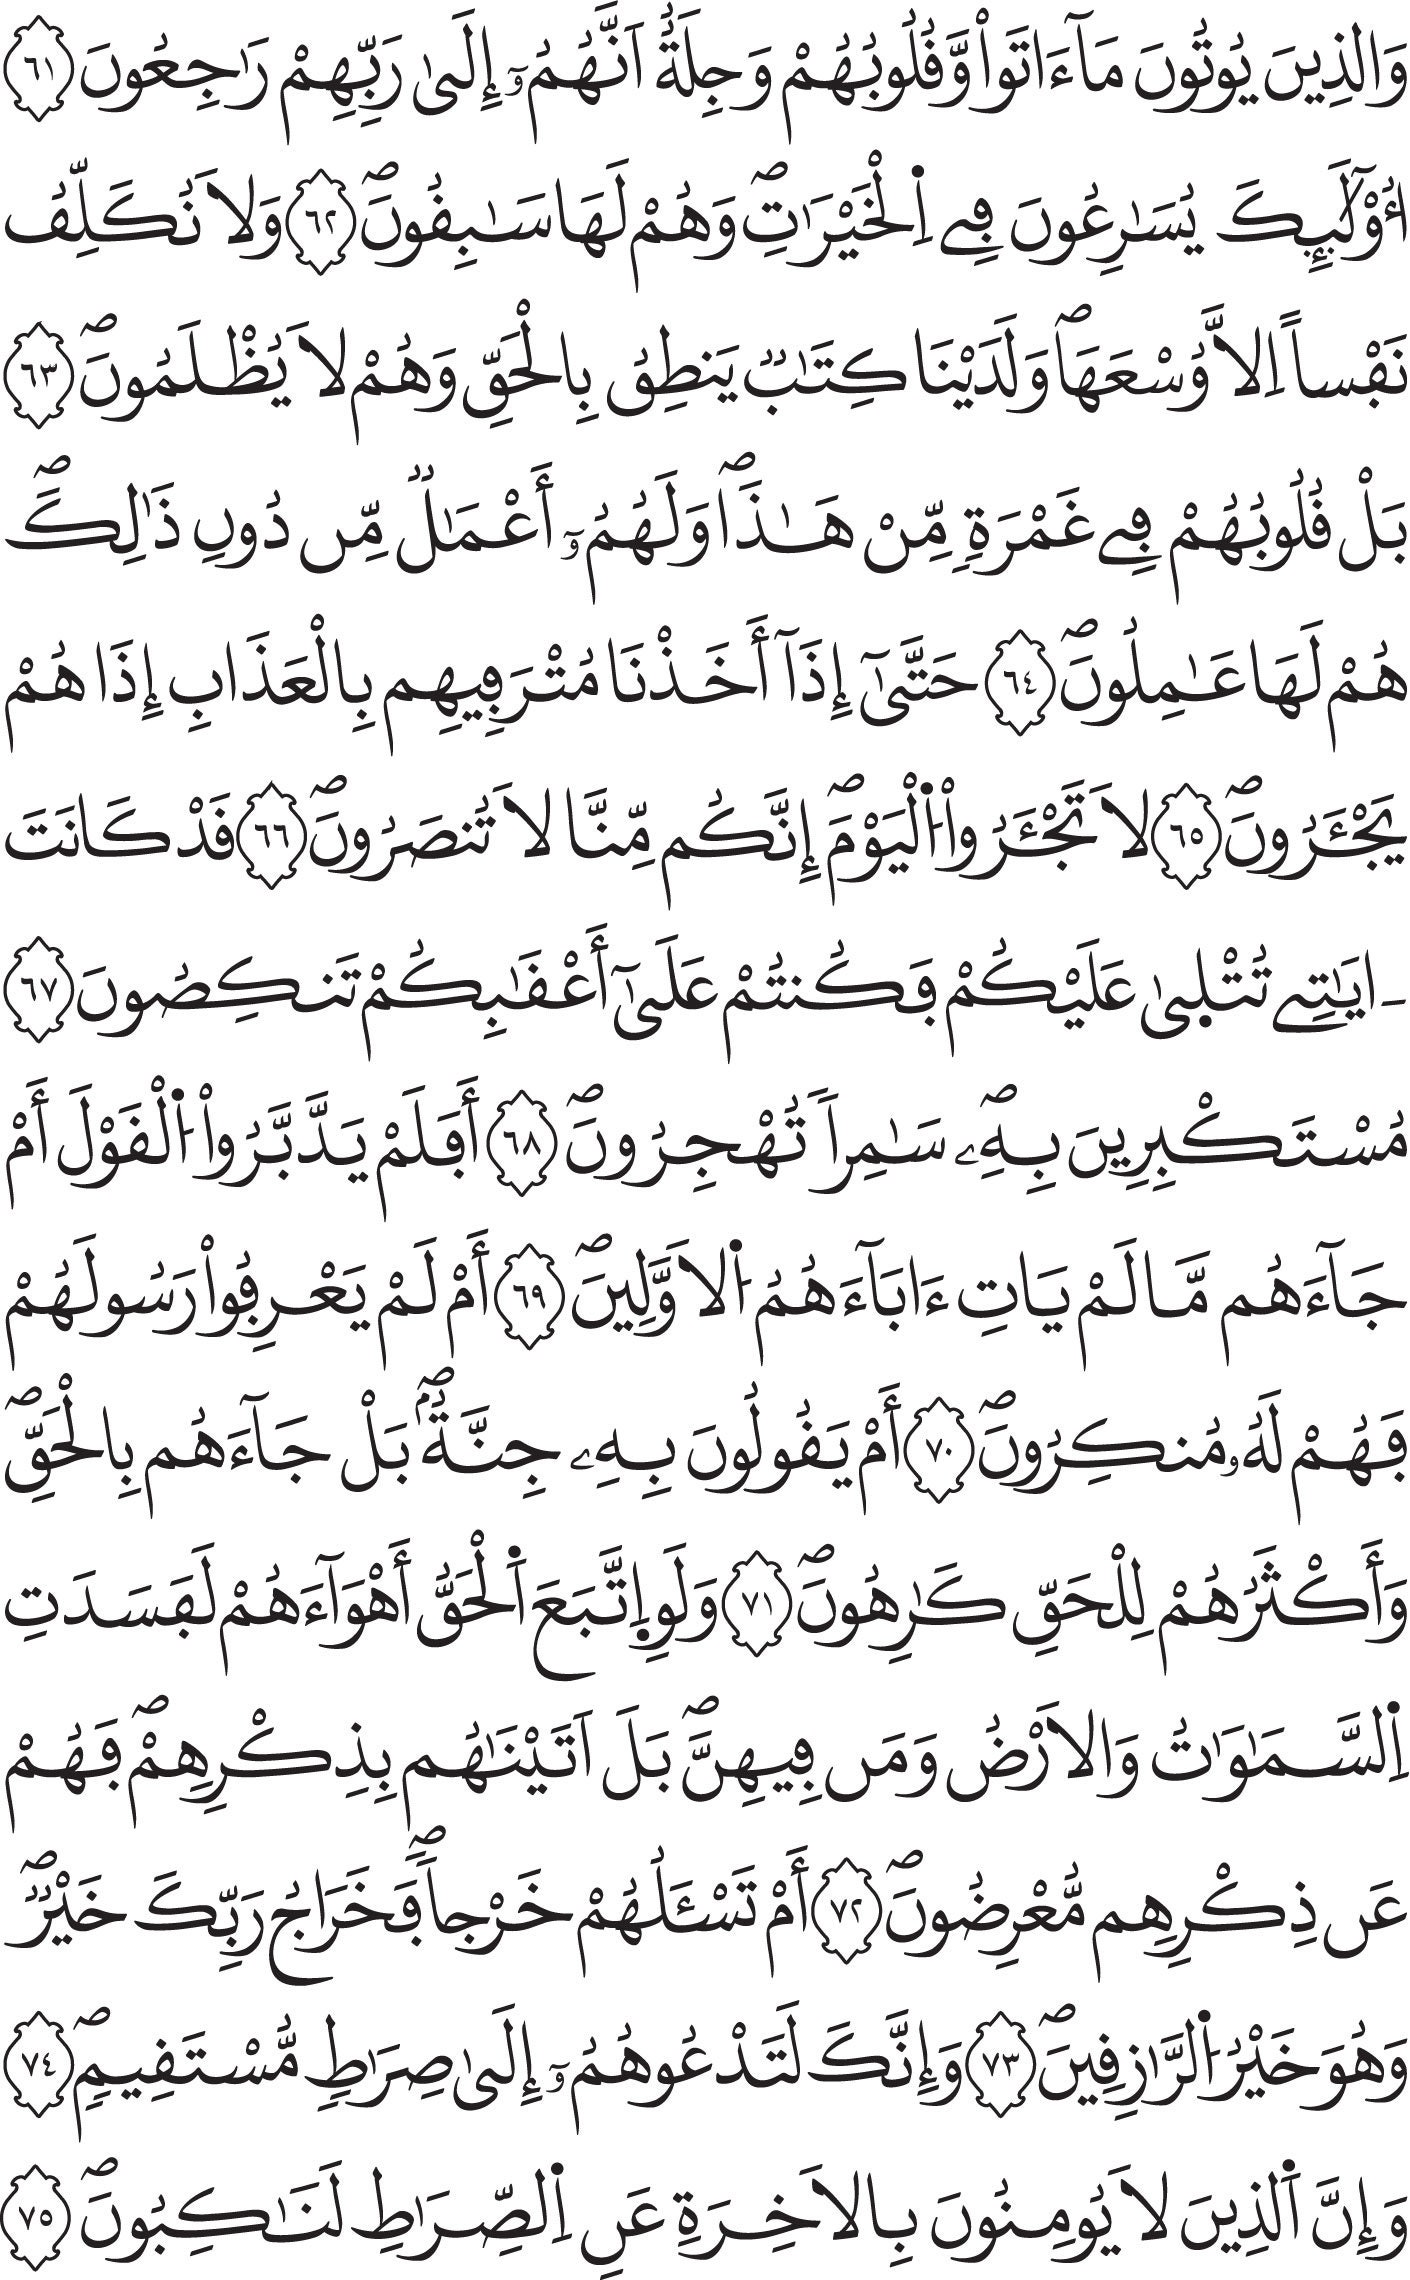 وَالذِينَ يُوتُونَ مَآ ءَاتَواْ وَّقُلُوبُهُمْ وَجِلَةٌ اَنَّهُمُۥٓ إِلَىٰ رَبِّهِمْ رَٰجِعُونَ ٦١
أُوْلَٰٓئِكَ يُسَٰرِعُونَ فِے اِ۬لْخَيْرَٰتِۖ وَهُمْ لَهَا سَٰبِقُونَۖ ٦٢ وَلَا نُكَلِّفُ
نَفْساً اِلَّا وُسْعَهَاۖ وَلَدَيْنَا كِتَٰبٞ يَنطِقُ بِالْحَقِّ وَهُمْ لَا يُظْلَمُونَۖ ٦٣
بَلْ قُلُوبُهُمْ فِے غَمْرَةٖ مِّنْ هَٰذَاۖ وَلَهُمُۥٓ أَعْمَٰلٞ مِّن دُونِ ذَٰلِكَۖ
هُمْ لَهَا عَٰمِلُونَۖ ٦٤ حَتَّىٰٓ إِذَآ أَخَذْنَا مُتْرَفِيهِم بِالْعَذَابِ إِذَا هُمْ
يَجْـَٔرُونَۖ ٦٥ لَا تَجْـَٔرُواْ اُ۬لْيَوْمَۖ إِنَّكُم مِّنَّا لَا تُنصَرُونَۖ ٦٦ قَدْ كَانَتَ
ـ اَيَٰتِے تُتْلَىٰ عَلَيْكُمْ فَكُنتُمْ عَلَىٰٓ أَعْقَٰبِكُمْ تَنكِصُونَ ٦٧
مُسْتَكْبِرِينَ بِهِۦۖ سَٰمِراٗ تُهْجِرُونَۖ ٦٨ أَفَلَمْ يَدَّبَّرُواْ اُ۬لْقَوْلَ أَمْ
جَآءَهُم مَّا لَمْ يَاتِ ءَابَآءَهُمُ اُ۬لَاوَّلِينَۖ ٦٩ أَمْ لَمْ يَعْرِفُواْ رَسُولَهُمْ
فَهُمْ لَهُۥ مُنكِرُونَۖ ٧٠ أَمْ يَقُولُونَ بِهِۦ جِنَّةُۢۖ بَلْ جَآءَهُم بِالْحَقِّۖ
وَأَكْثَرُهُمْ لِلْحَقِّ كَٰرِهُونَۖ ٧١ وَلَوِ اِ۪تَّبَعَ اَ۬لْحَقُّ أَهْوَآءَهُمْ لَفَسَدَتِ
اِ۬لسَّمَٰوَٰتُ وَالَارْضُ وَمَن فِيهِنَّۖ بَلَ اَتَيْنَٰهُم بِذِكْرِهِمْۖ فَهُمْ
عَن ذِكْرِهِم مُّعْرِضُونَۖ ٧٢ أَمْ تَسْـَٔلُهُمْ خَرْجاٗۖ فَخَرَاجُ رَبِّكَ خَيْرٞۖ
وَهُوَ خَيْرُ اُ۬لرَّٰزِقِينَۖ ٧٣ وَإِنَّكَ لَتَدْعُوهُمُۥٓ إِلَىٰ صِرَٰطٖ مُّسْتَقِيمٖۖ ٧٤
وَإِنَّ اَ۬لذِينَ لَا يُومِنُونَ بِالَاخِرَةِ عَنِ اِ۬لصِّرَٰطِ لَنَٰكِبُونَۖ ٧٥